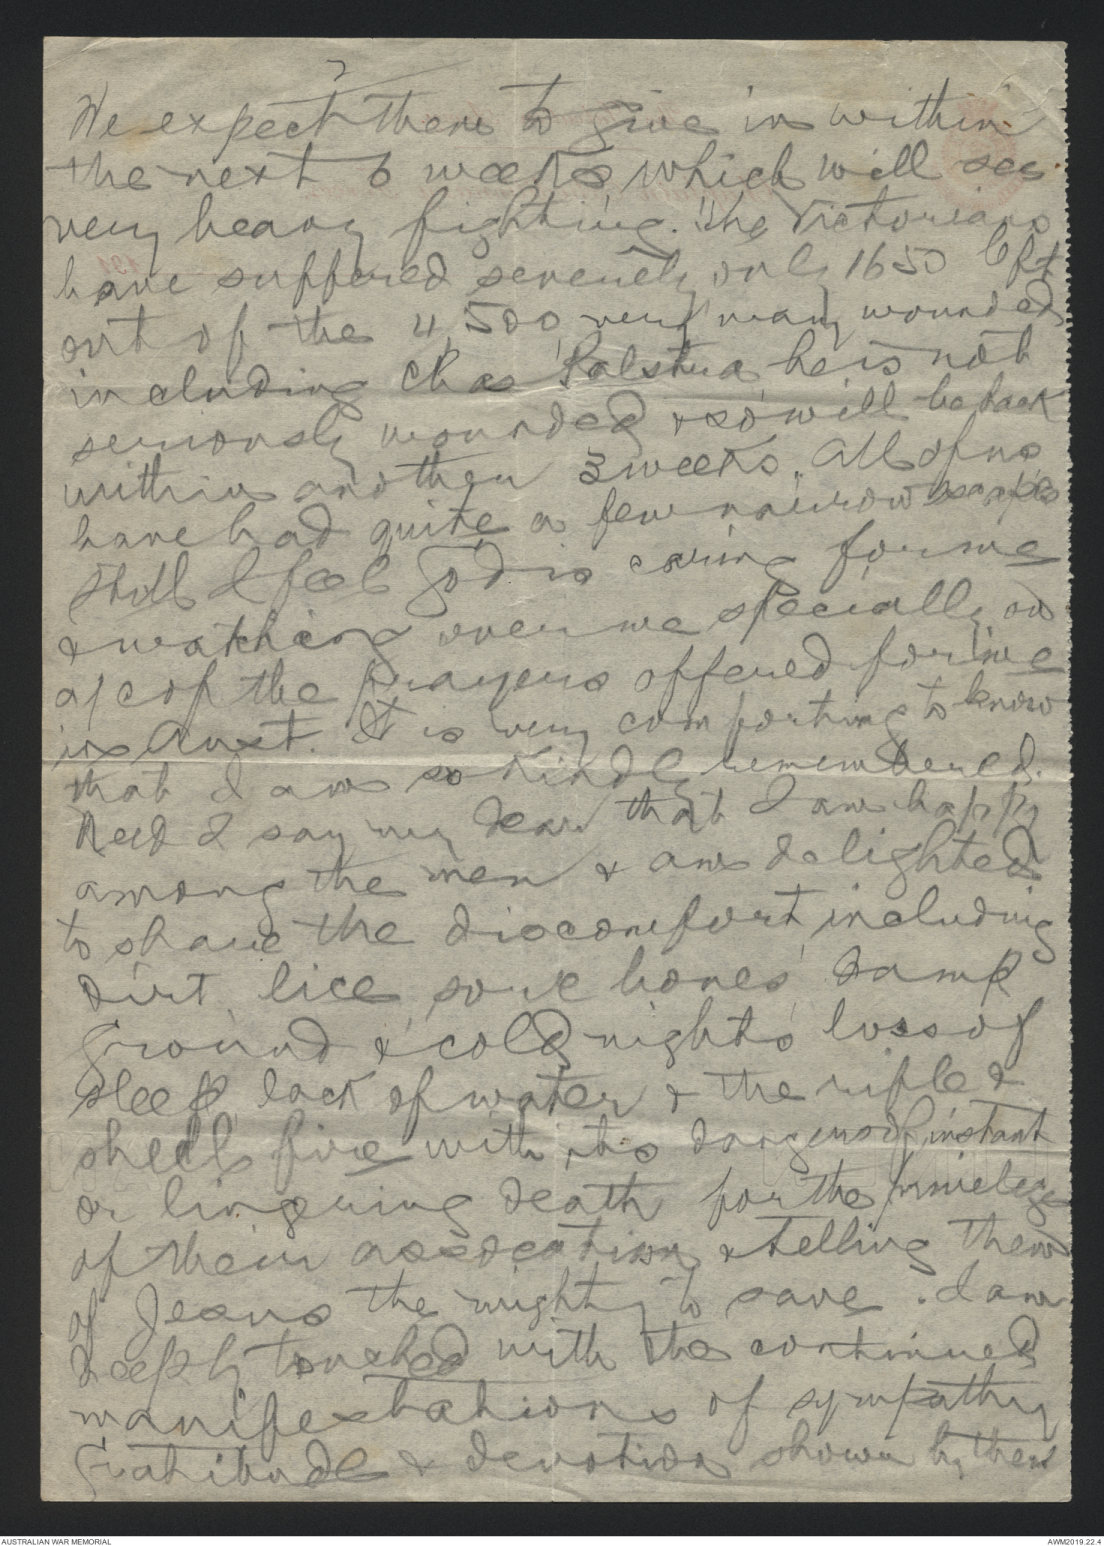 We expect them to give in within
the next 6 weeks which will see
very heavy fighting. The Victorians
have suffered severely only 1650 left
out of the 4,500, very many wounded
including Chas he is not
seriously wounded & so will be back
within another 3 weeks. All of us
have had quite a few narrow escapes
still I feel God is caring for me
& watching over me specially on
a/c of the prayers offered for me
in Aust. It is very comforting to know
that I am so kindly remembered.
Need I say my dear that I am happy
among the men & am delighted
to share the discomfort, including
dirt, lice, sore bones, damp
ground & cold nights, loss of
sleep, lack of water & the rifle &
shell fire with its dangers of instant
or lingering death for the privilege
of their association & telling them
of Jesus the mighty to save. I am
deeply touched with the continued
manifestations of sympathy
Gratitude & devotion shown by them
AUSTRALIAN WAR MEMORIAL
AWM2019.22.4